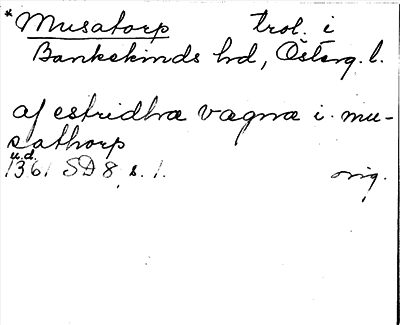 *Musatorp trol. i
Bankekinds hd, Österg. l.
af estridhæ vægnæ i mu-
sathorp
u.d.
1361 SD 8 s. 1. orig.